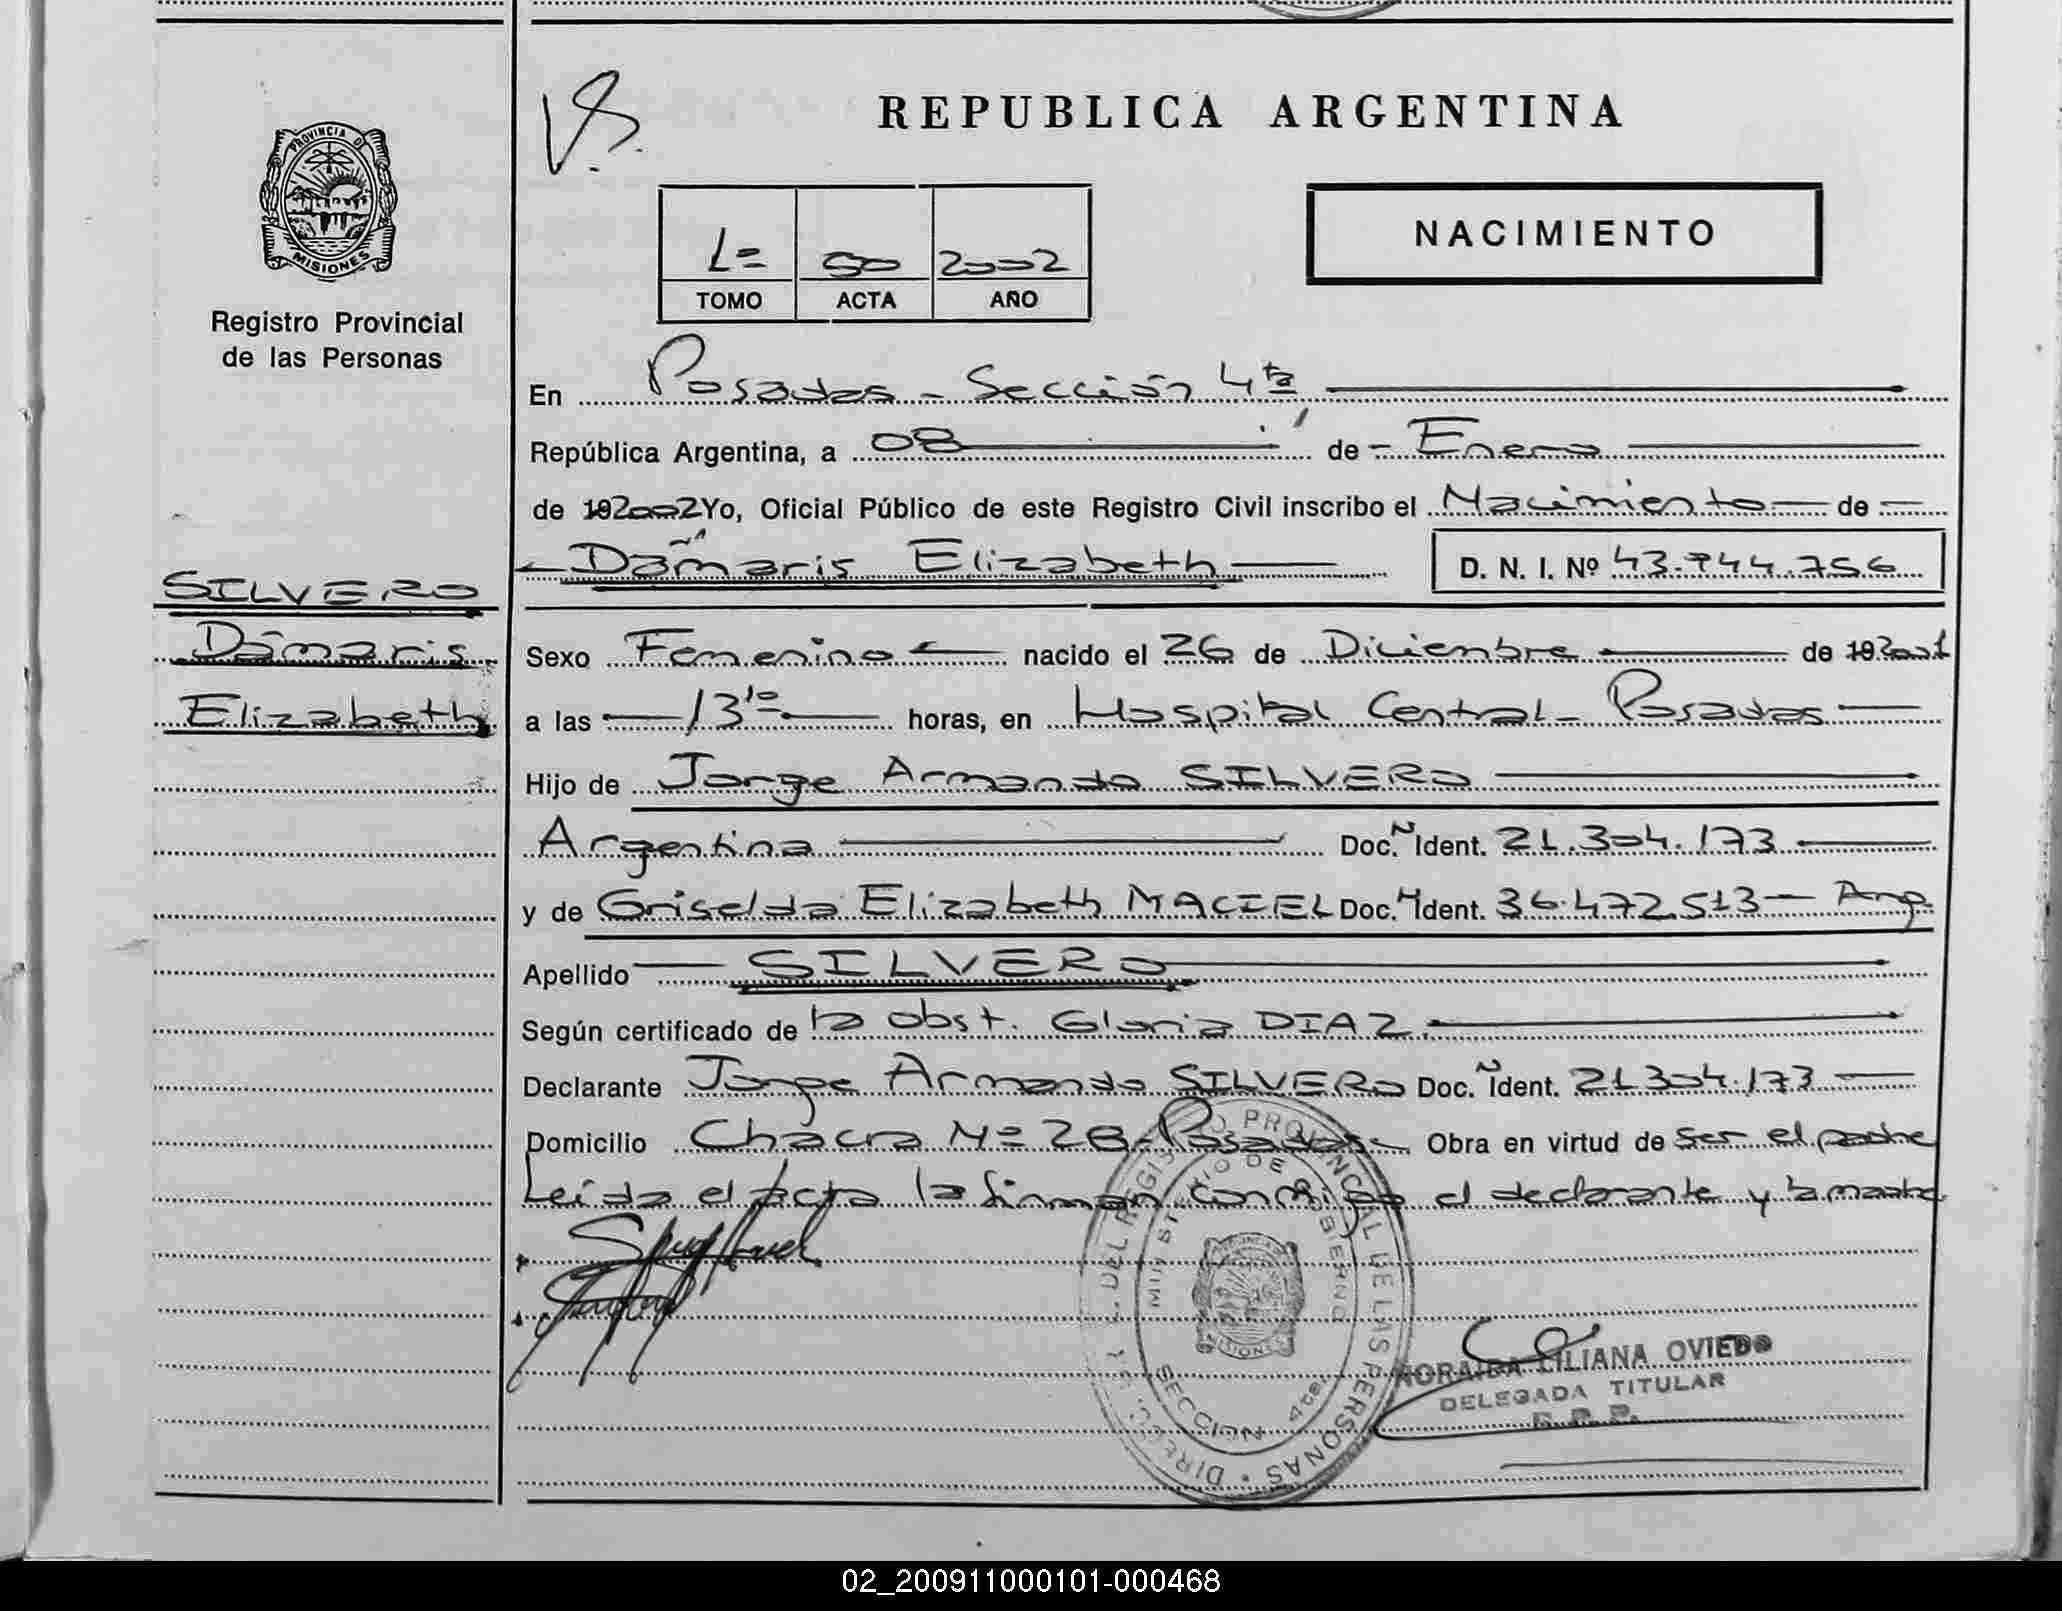 REPUBLICA ARGENTINA
PROVINCIA DE MISIONES
Registro Provincial
de las Personas
NACIMIENTO
L= 50 2002
TOMO ACTA AÑO
En Posadas - Sección 4ta
República Argentina, a 08 de Enero
de 192002 Yo, Oficial Público de este Registro Civil inscribo el Nacimiento de
Dámaris Elizabeth D. N. I. Nº 43.744.756
SILVERO
Dámaris
Elizabeth
Sexo Femenino nacido el 26 de Diciembre de 192001
a las 13 10 horas, en Hospital Central - Posadas
Hijo de Jorge Armando SILVERO
Argentina Doc. Ident. 21.304.173
y de Griselda Elizabeth MACIEL Doc. Ident. 36.472.513 - Arg.
Apellido SILVERO
Según certificado de la obst. Gloria DIAZ.
Declarante Jorge Armando SILVERO Doc. Ident. 21.304.173
Domicilio Chacra Nº 28 - Posadas - Obra en virtud de ser el padre
Leída el acta la firman conmigo el declarante y la madre.
DIRECC. GRAL. DEL REGISTRO PROVINCIAL DE LAS PERSONAS
MINISTERIO DE GOBIERNO
SECCION 4ta
MISIONES
NORAIDA LILIANA OVIEDO
DELEGADA TITULAR
02_200911000101-000468